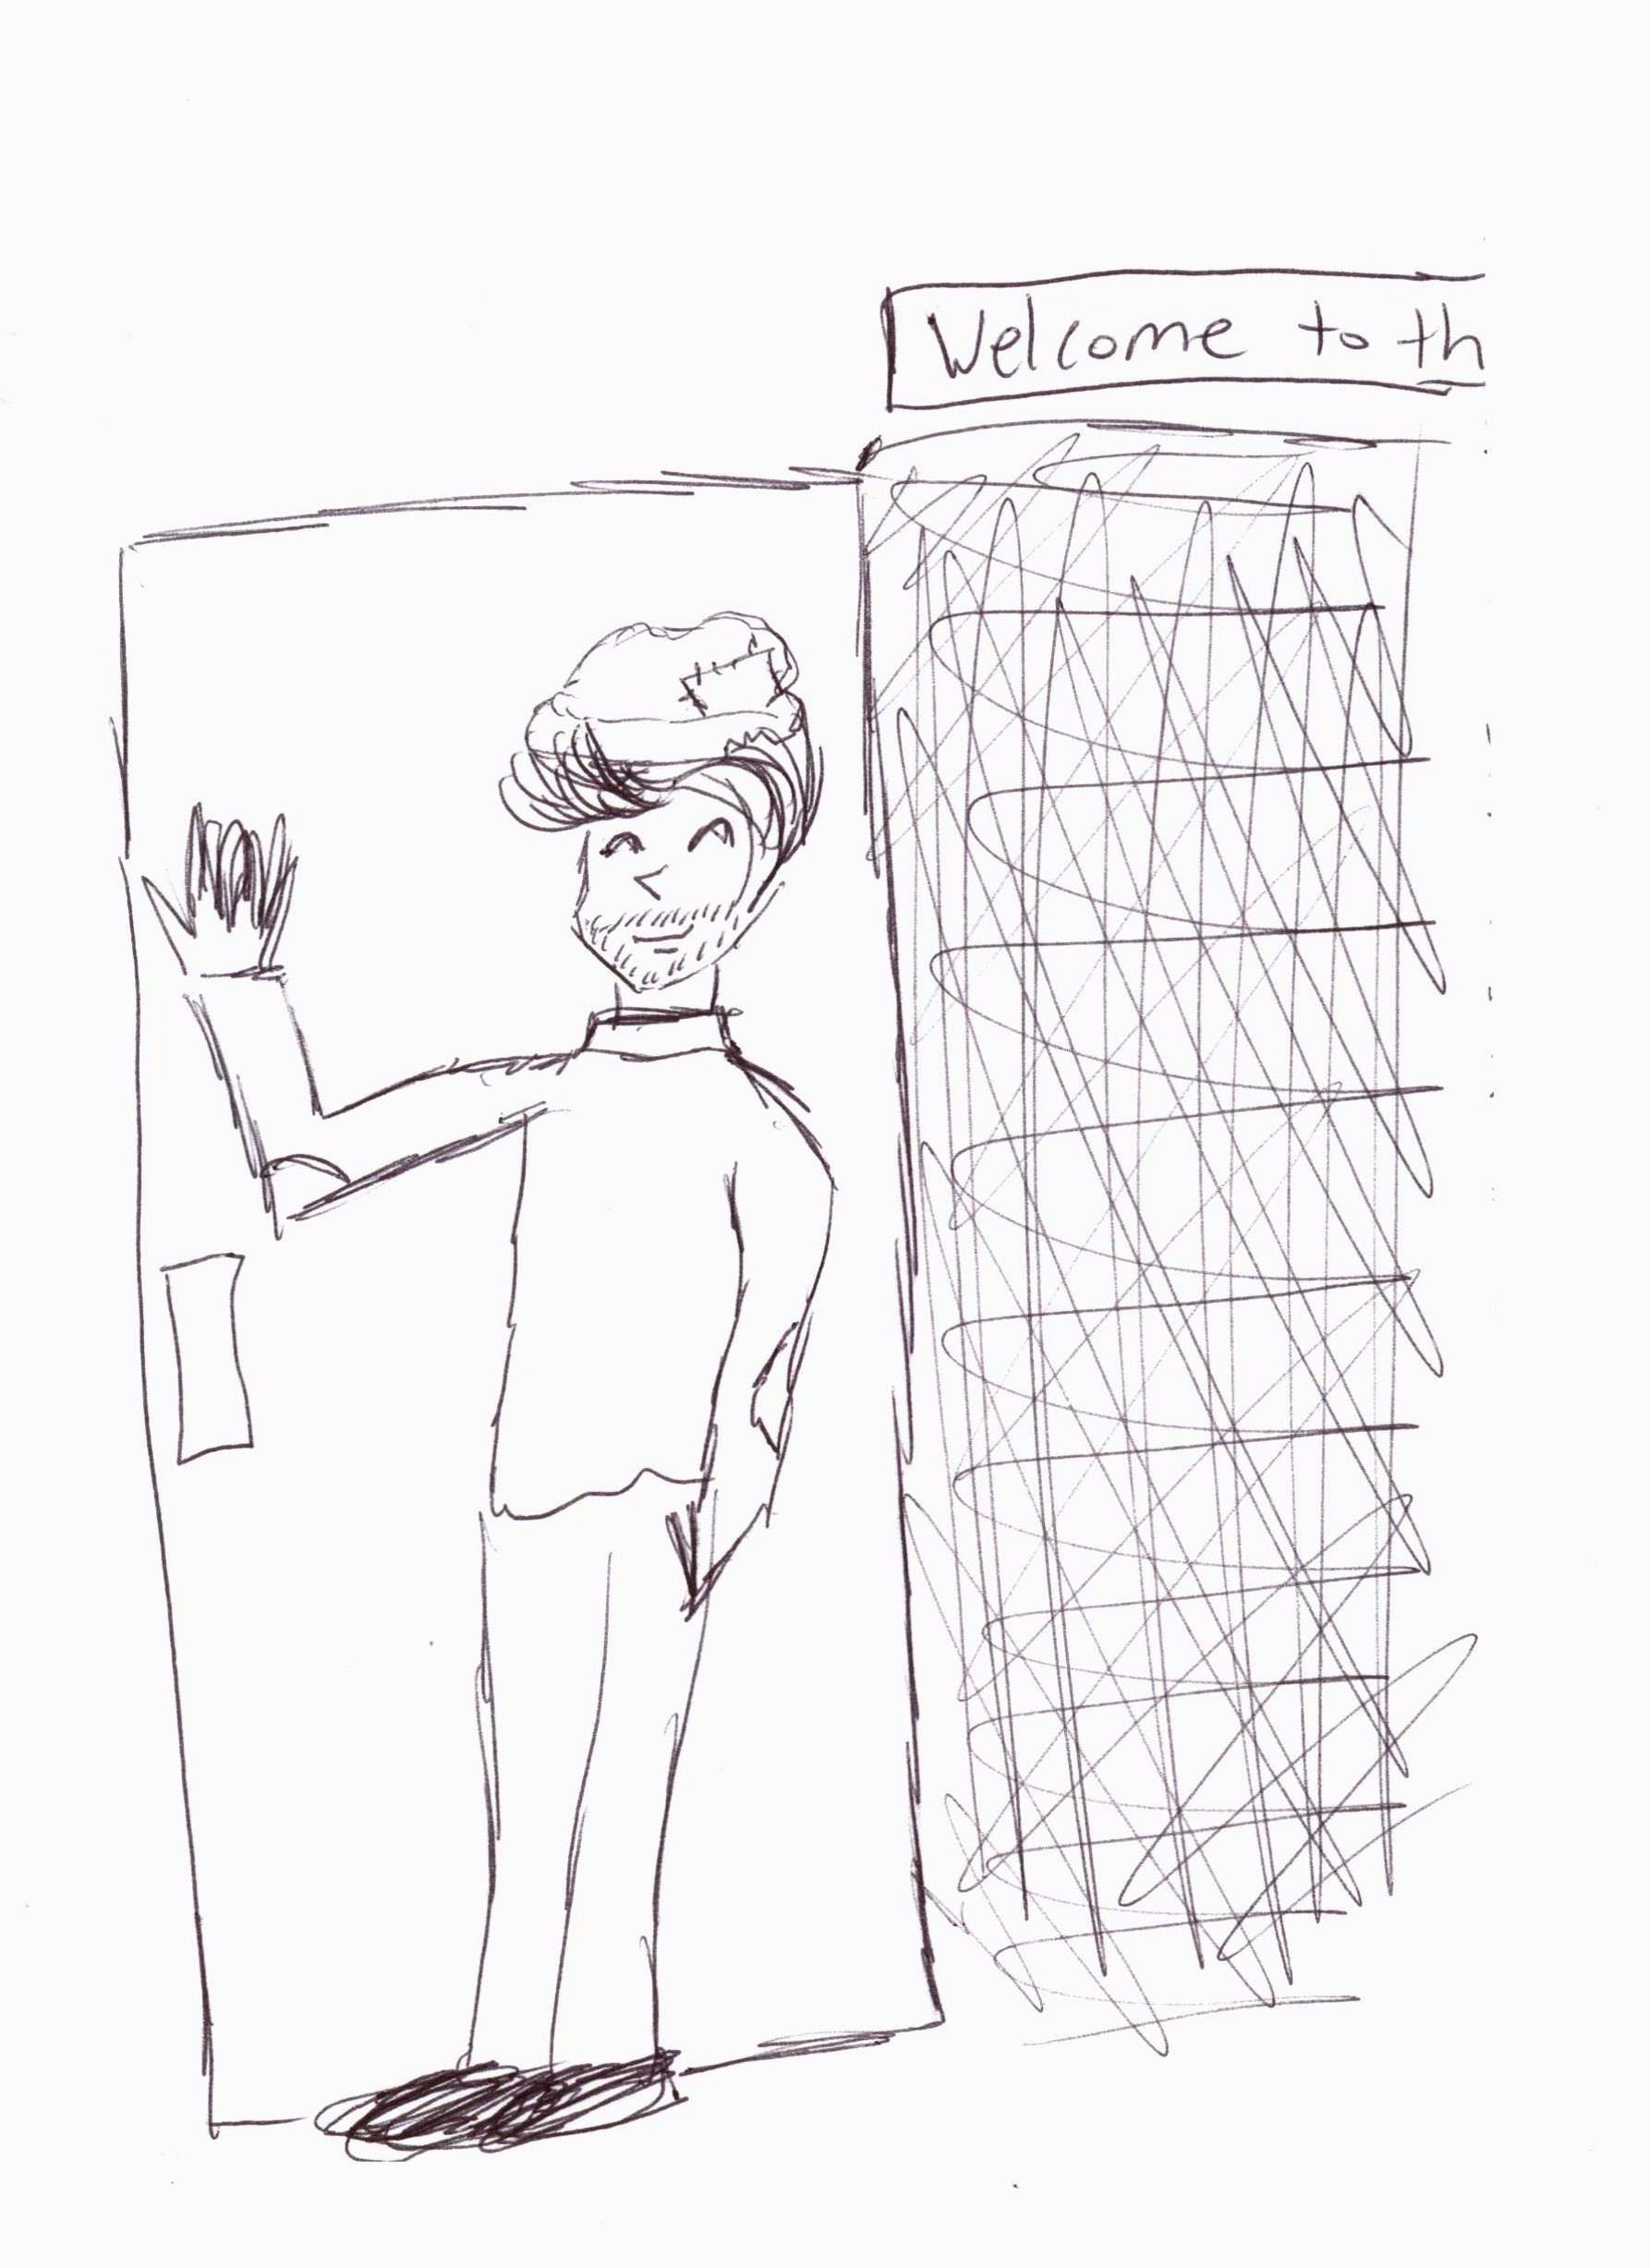 Welcome to th